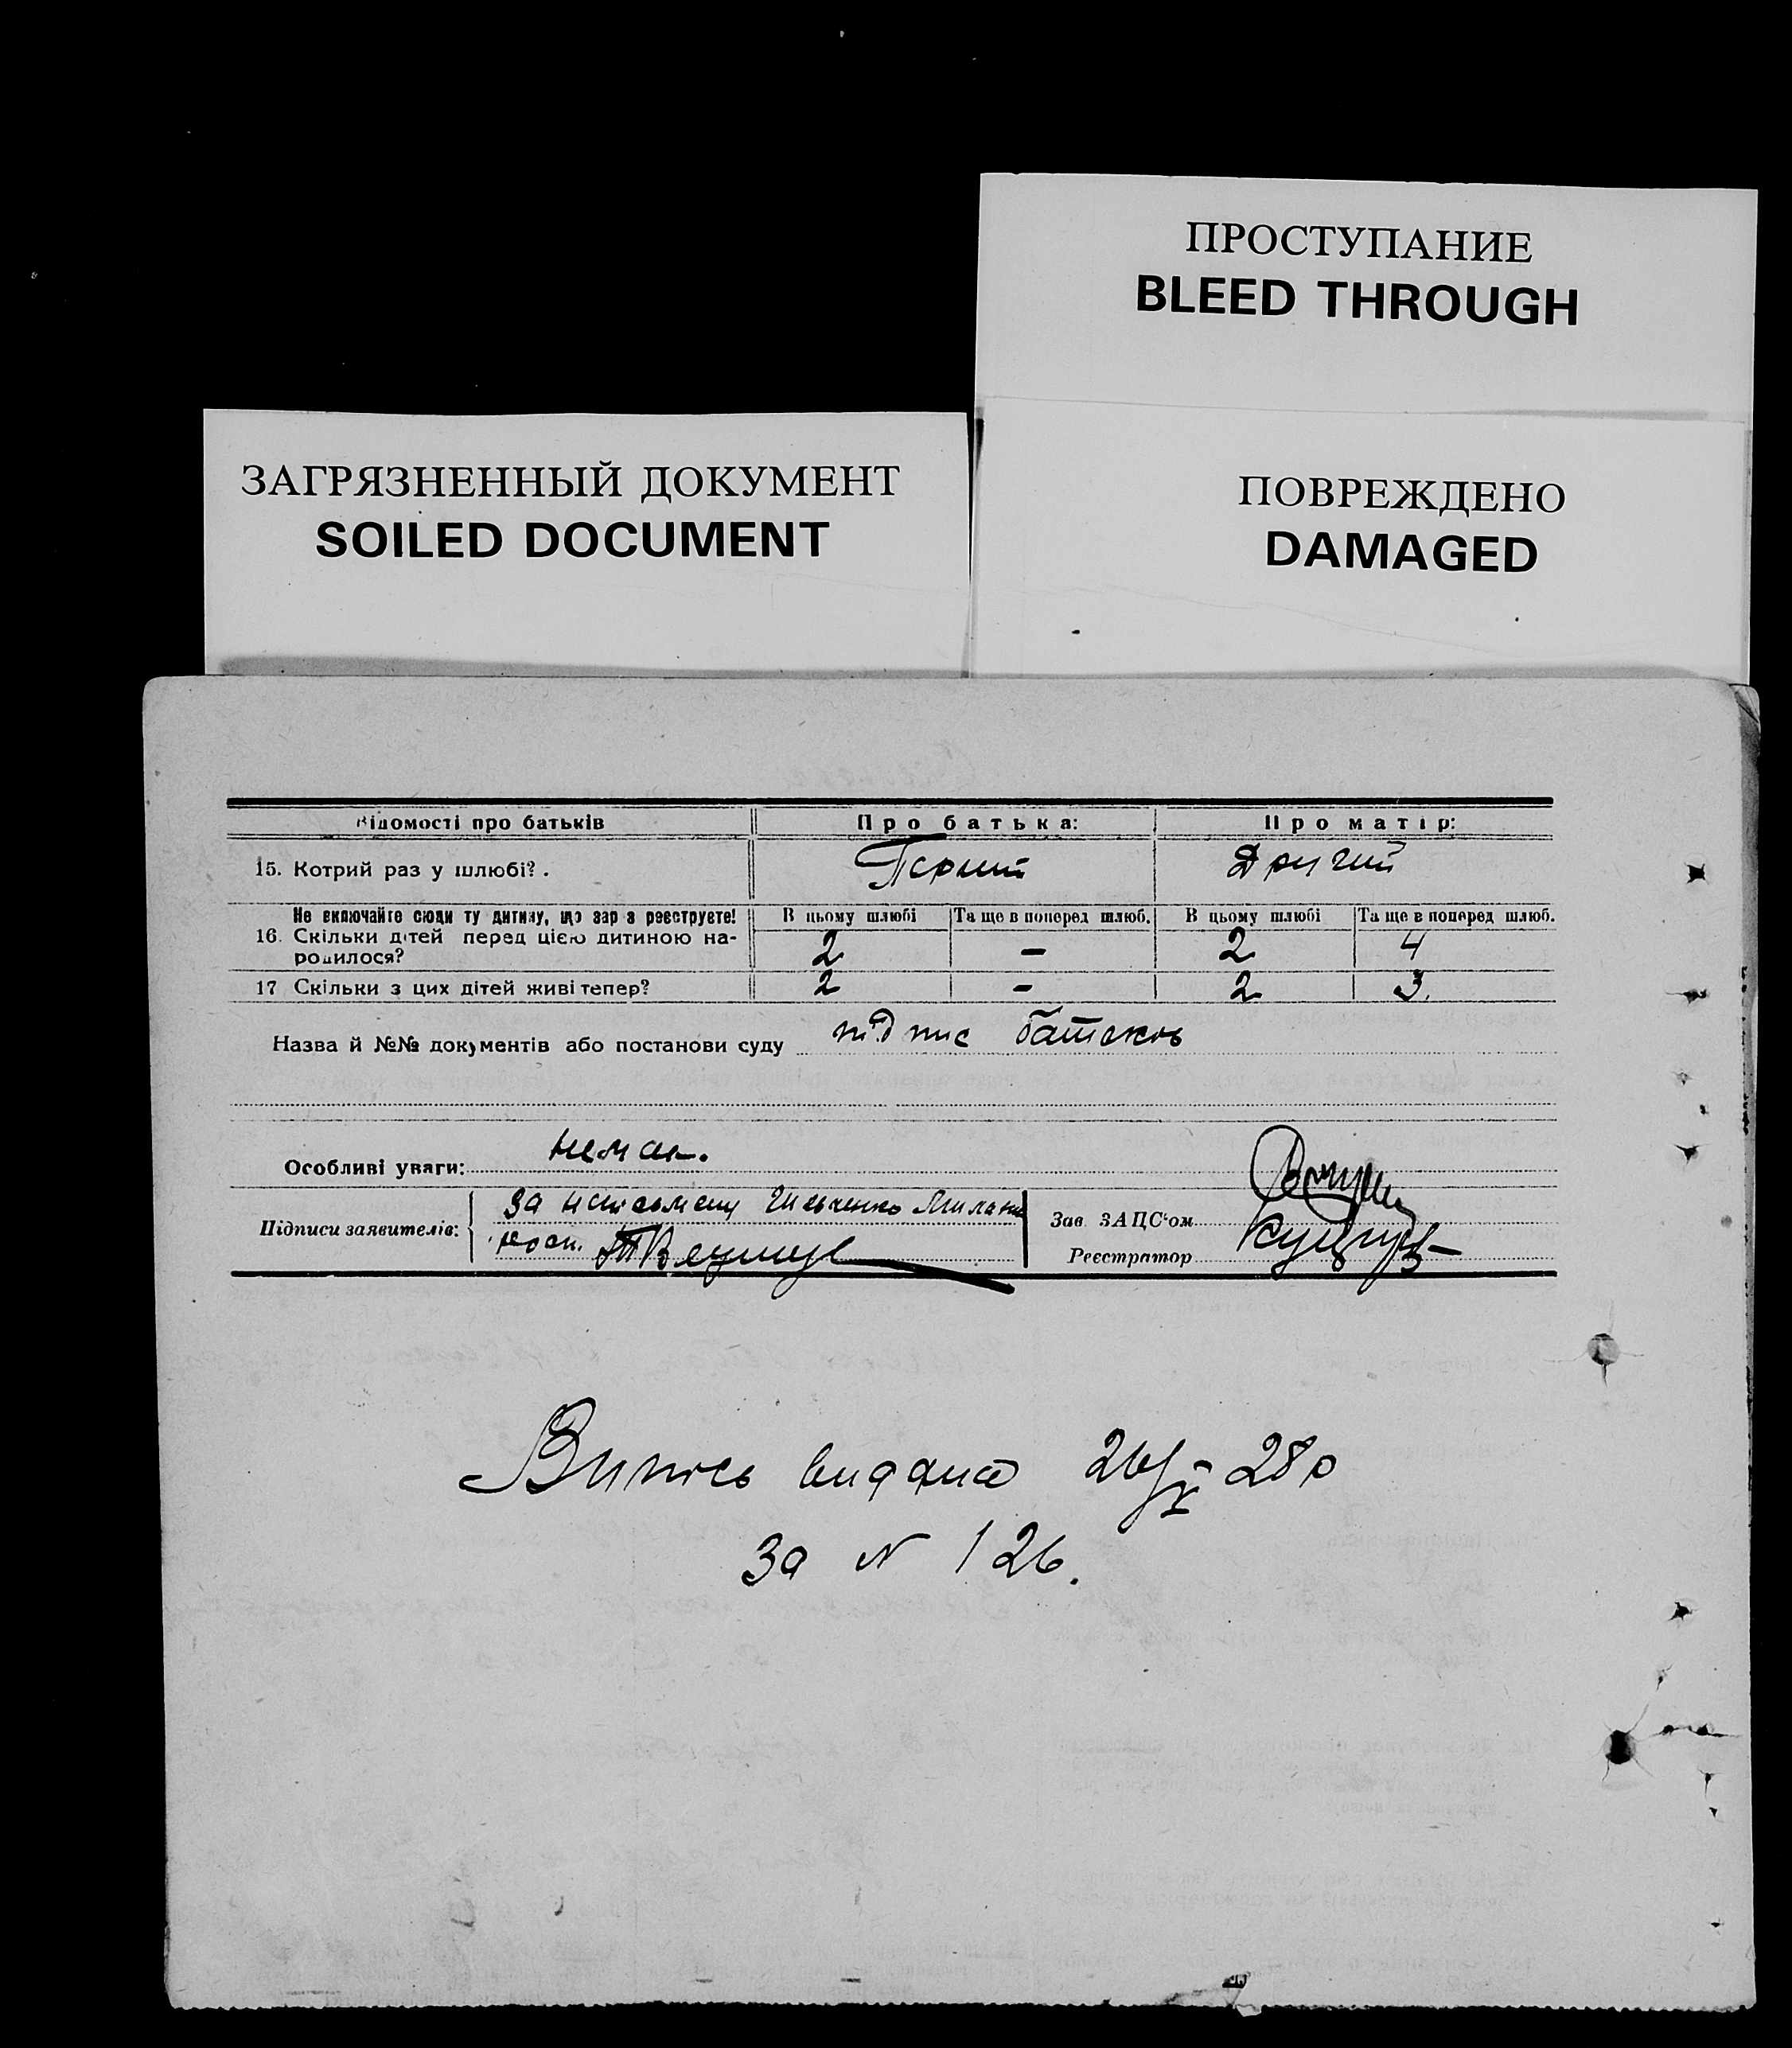 ПРОСТУПАНИЕ
BLEED THROUGH
ЗАГРЯЗНЕННЫЙ ДОКУМЕНТ
SOILED DOCUMENT
ПОВРЕЖДЕНО
DAMAGED
Відомості про батьків Про батька: Про матір:
15. Котрий раз у шлюбі? . Перший Другий
Не включайте сюди ту дитину, що зараз реєструєте! В цьому шлюбі Та ще в поперед шлюб. В цьому шлюбі Та ще в поперед шлюб.
16. Скільки дітей перед цією дитиною на-
родилося? 2 – 2 4
17 Скільки з цих дітей живі тепер? 2 – 2 3.
Назва й №№ документів або постанови суду підпис батьків
Особливі уваги: немає.
Підписи заявителів: За Зав ЗАЦС'ом
Реєстратор
Випись видана 26/X – 28 р
За N 126.